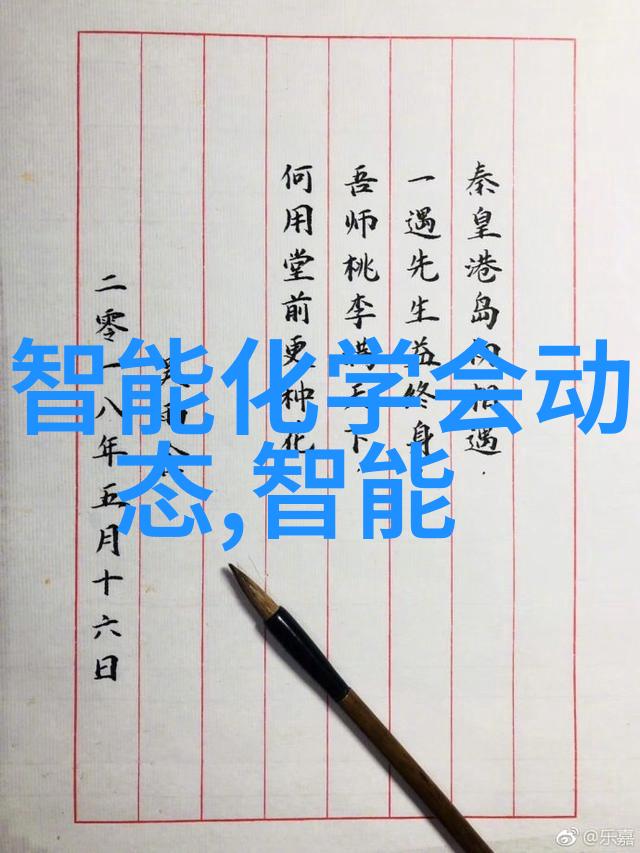 智能化学会动
态,智能
秦皇港岛初相遇
一遇先生益终身
吾师桃李满天下
何用堂前更种花
二零一八年五月十六日
@乐嘉